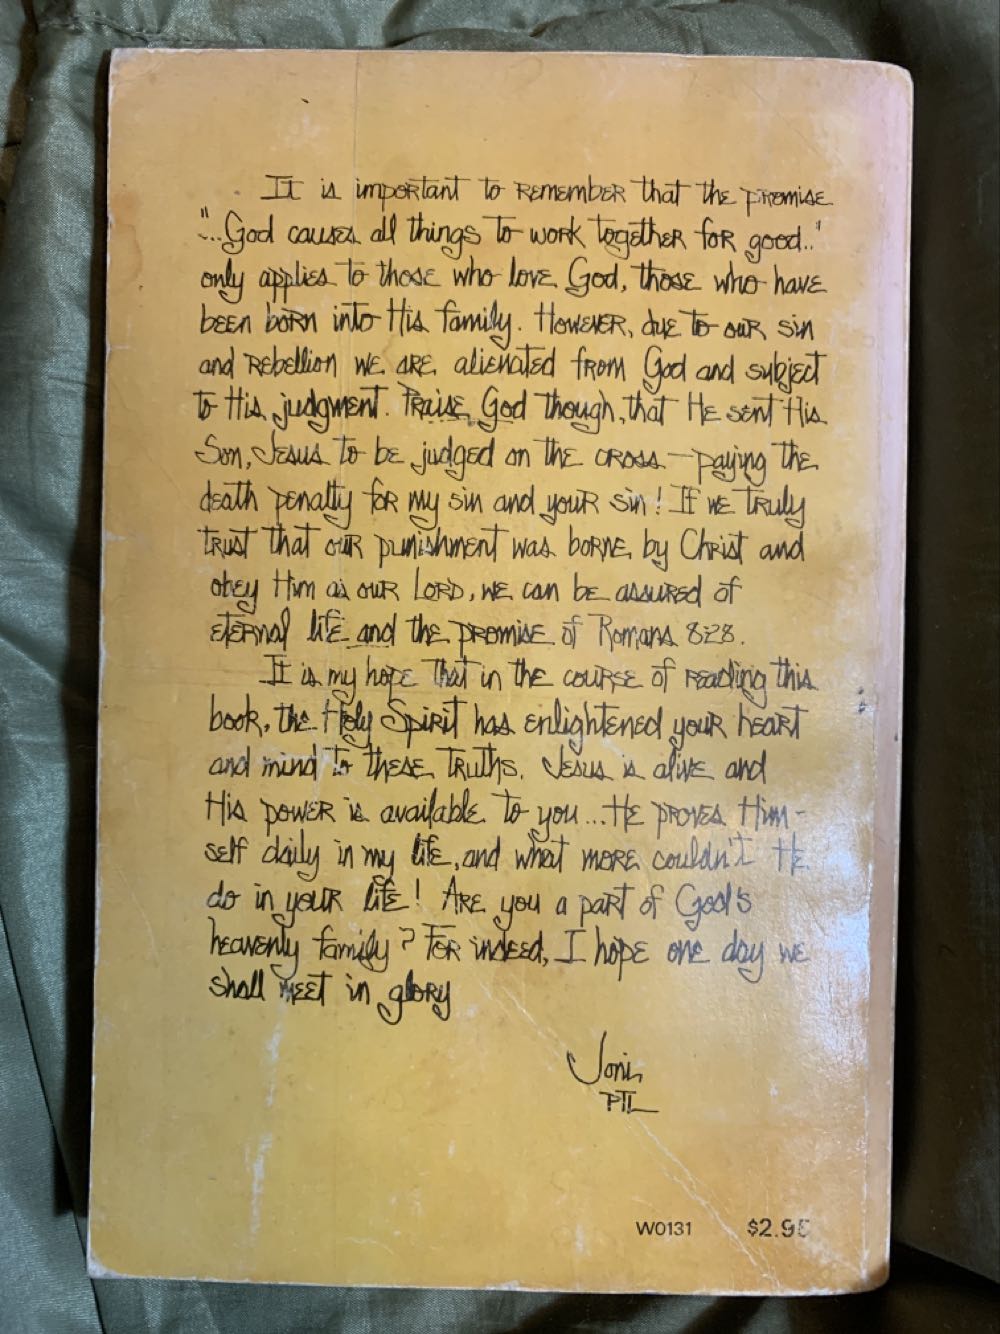 It is important to remember that the promise
"...God causes all things to work together for good.."
only applies to those who love God, those who have
been born into His family. However, due to our sin
and rebellion we are alienated from God and subject
to His judgment. Praise God though, that He sent His
Son, Jesus to be judged on the cross—paying the
death penalty for my sin and your sin! If we truly
trust that our punishment was borne by Christ and
obey Him as our Lord, we can be assured of
eternal life and the promise of Romans 8:28.
It is my hope that in the course of reading this
book, the Holy Spirit has enlightened your heart
and mind to these truths. Jesus is alive and
His power is available to you...He proves Him-
self daily in my life, and what more couldn't He
do in your life! Are you a part of God's
heavenly family? For indeed, I hope one day we
shall meet in glory
Joni
PTL
W0131 $2.95